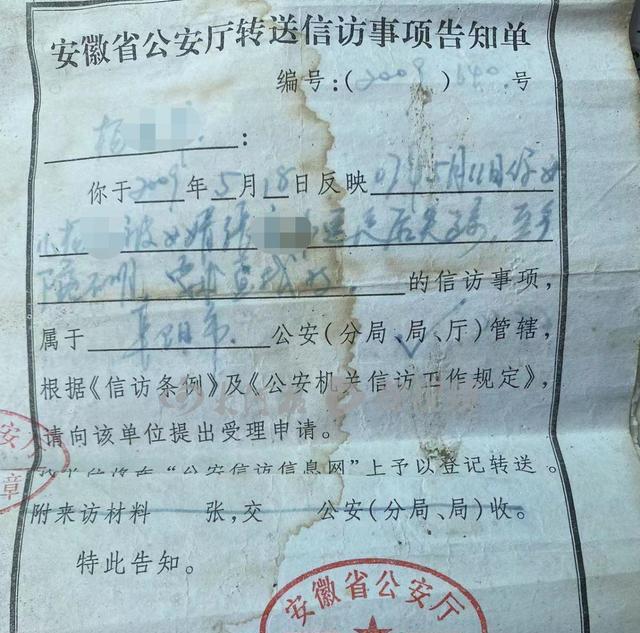 安徽省公安厅转送信访事项告知单
编号:(2009)640号
:
你于2009年5月18日反映07年5月11日你女
儿 被女婿张 后失踪,至今
下落不明,要求查找的
的信访事项,
属于阜阳市公安(分局、局、厅)管辖,
根据《信访条例》及《公安机关信访工作规定》,
请向该单位提出受理申请。
“公安信访信息网”上予以登记转送。
附来访材料 张,交 公安(分局、局)收。
特此告知。
公安
章
安徽省公安厅